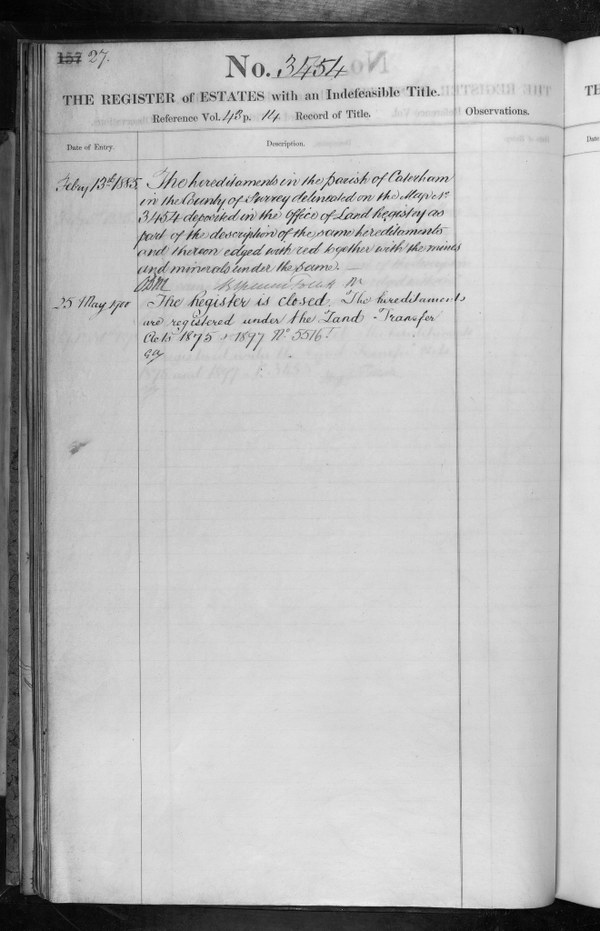 157 27.
No. 3454
THE REGISTER of ESTATES with an Indefeasible Title.
Reference Vol. 43 p. 14 Record of Title.
Observations.
Date of Entry.
Description.
Feby 13th 1885 The hereditaments in the parish of Caterham
in the County of Surrey delineated on the Map No
3454 deposited in the Office of Land Registry as
part of the description of the same hereditaments
and thereon edged with red together with the mines
and minerals under the same.
25 May 1900 The Register is closed. The hereditaments
are registered under the Land Transfer
Acts 1875 & 1897 No 5516.
TH
Date